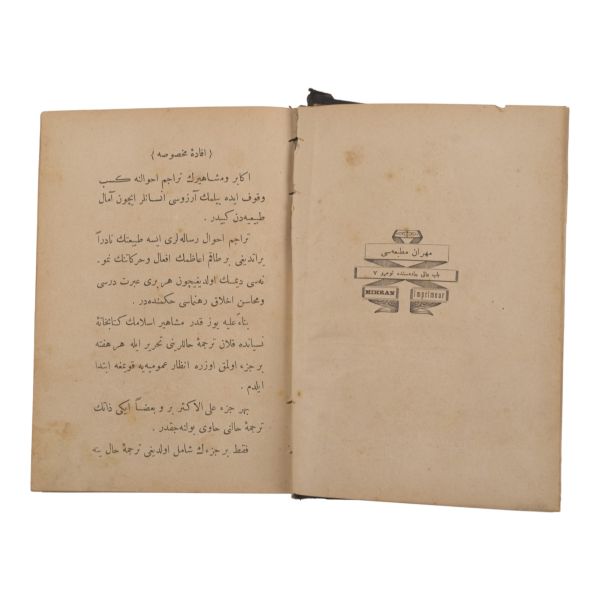 ﴿ افادهٔ مخصوصه ﴾
اكابر ومشاهيرك تراجم احوالنه كسب
وقوف ايده بيلمك آرزوسى انسانلر ايچون آمال
طبيعيه‌دن كبيدر .
تراجم احوال رساله‌لرى ايسه طبيعتك نادراً
يراتديغى بر طاقم اعاظمك افعال وحركاتنك نمو‌-
نه‌سى ديمك اولديغيچون هر برى عبرت درسى
ومحاسن اخلاق رهنماسى حكمنده‌در .
بناءً عليه يوز قدر مشاهير اسلامك كتابخانهٔ
نسيانده قلان ترجمهٔ حاللرينى تحرير ايله هر هفته
بر جزء اولمق اوزره انظار عموميه‌يه قونمغه ابتدا
ايلدم .
بهر جزء على الاكثر بر و بعضاً ايكى ذاتك
ترجمهٔ حالنى حاوى بولنه‌جقدر .
فقط بر جزءك شامل اولديغى ترجمهٔ حال ينه
مهران مطبعه‌سى
باب عالى جاده‌سنده نومرو ٧
MIHRAN
imprimeur